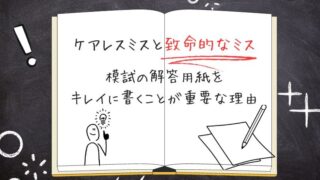 ケアレスミスと致命的なミス
模試の解答用紙を
キレイに書くことが重要な理由